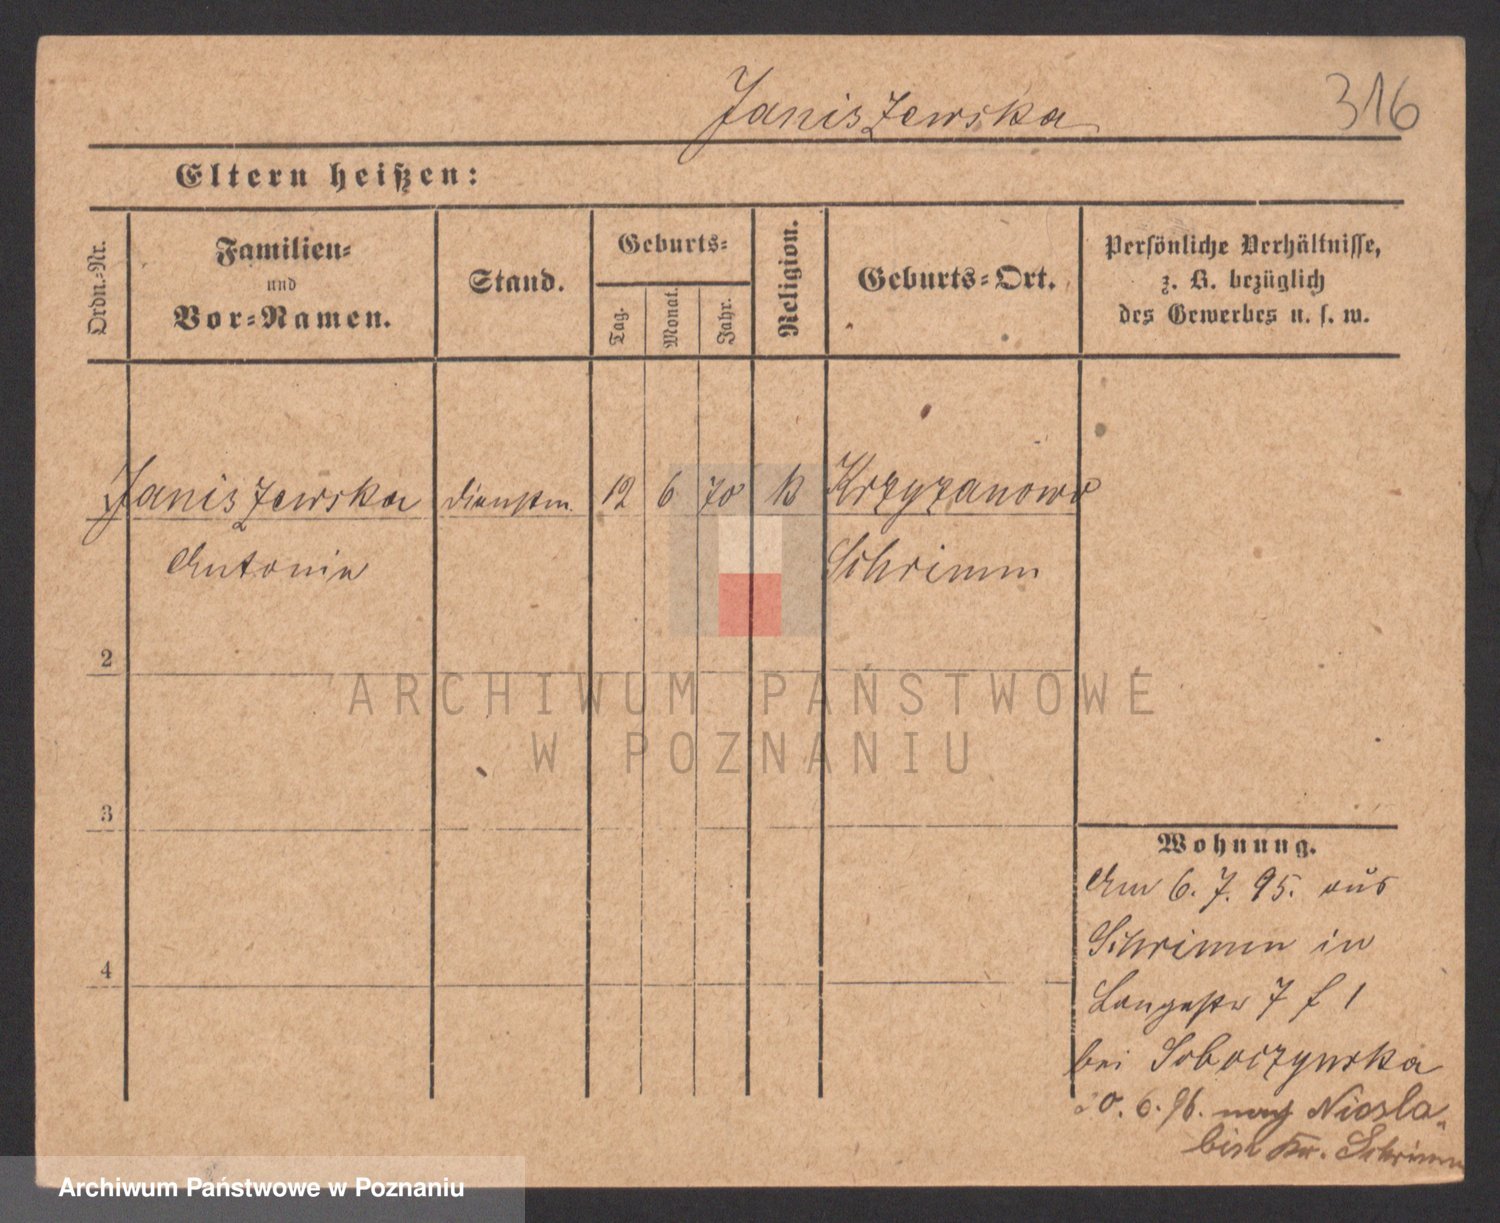 Janiszewska
316
Eltern heißen:
Ordn.-Nr.
Familien-
und
Vor-Namen.
Stand.
Geburts-
Tag.
Monat.
Jahr.
Religion.
Geburts-Ort.
Persönliche Verhältnisse,
z. B. bezüglich
des Gewerbes u. s. w.
Janiszewska dienstm. 12 6 70 k Krzyzanowo
Antonie Schrimm
2
ARCHIWUM PAŃSTWOWE
W POZNANIU
3
Wohnung.
Am 6. 7. 95. aus
Schrimm in
4
Langestr 7 f 1
bei Soboczynska
30. 6. 96. nach Niosla-
bin Kr. Schrimm
Archiwum Państwowe w Poznaniu